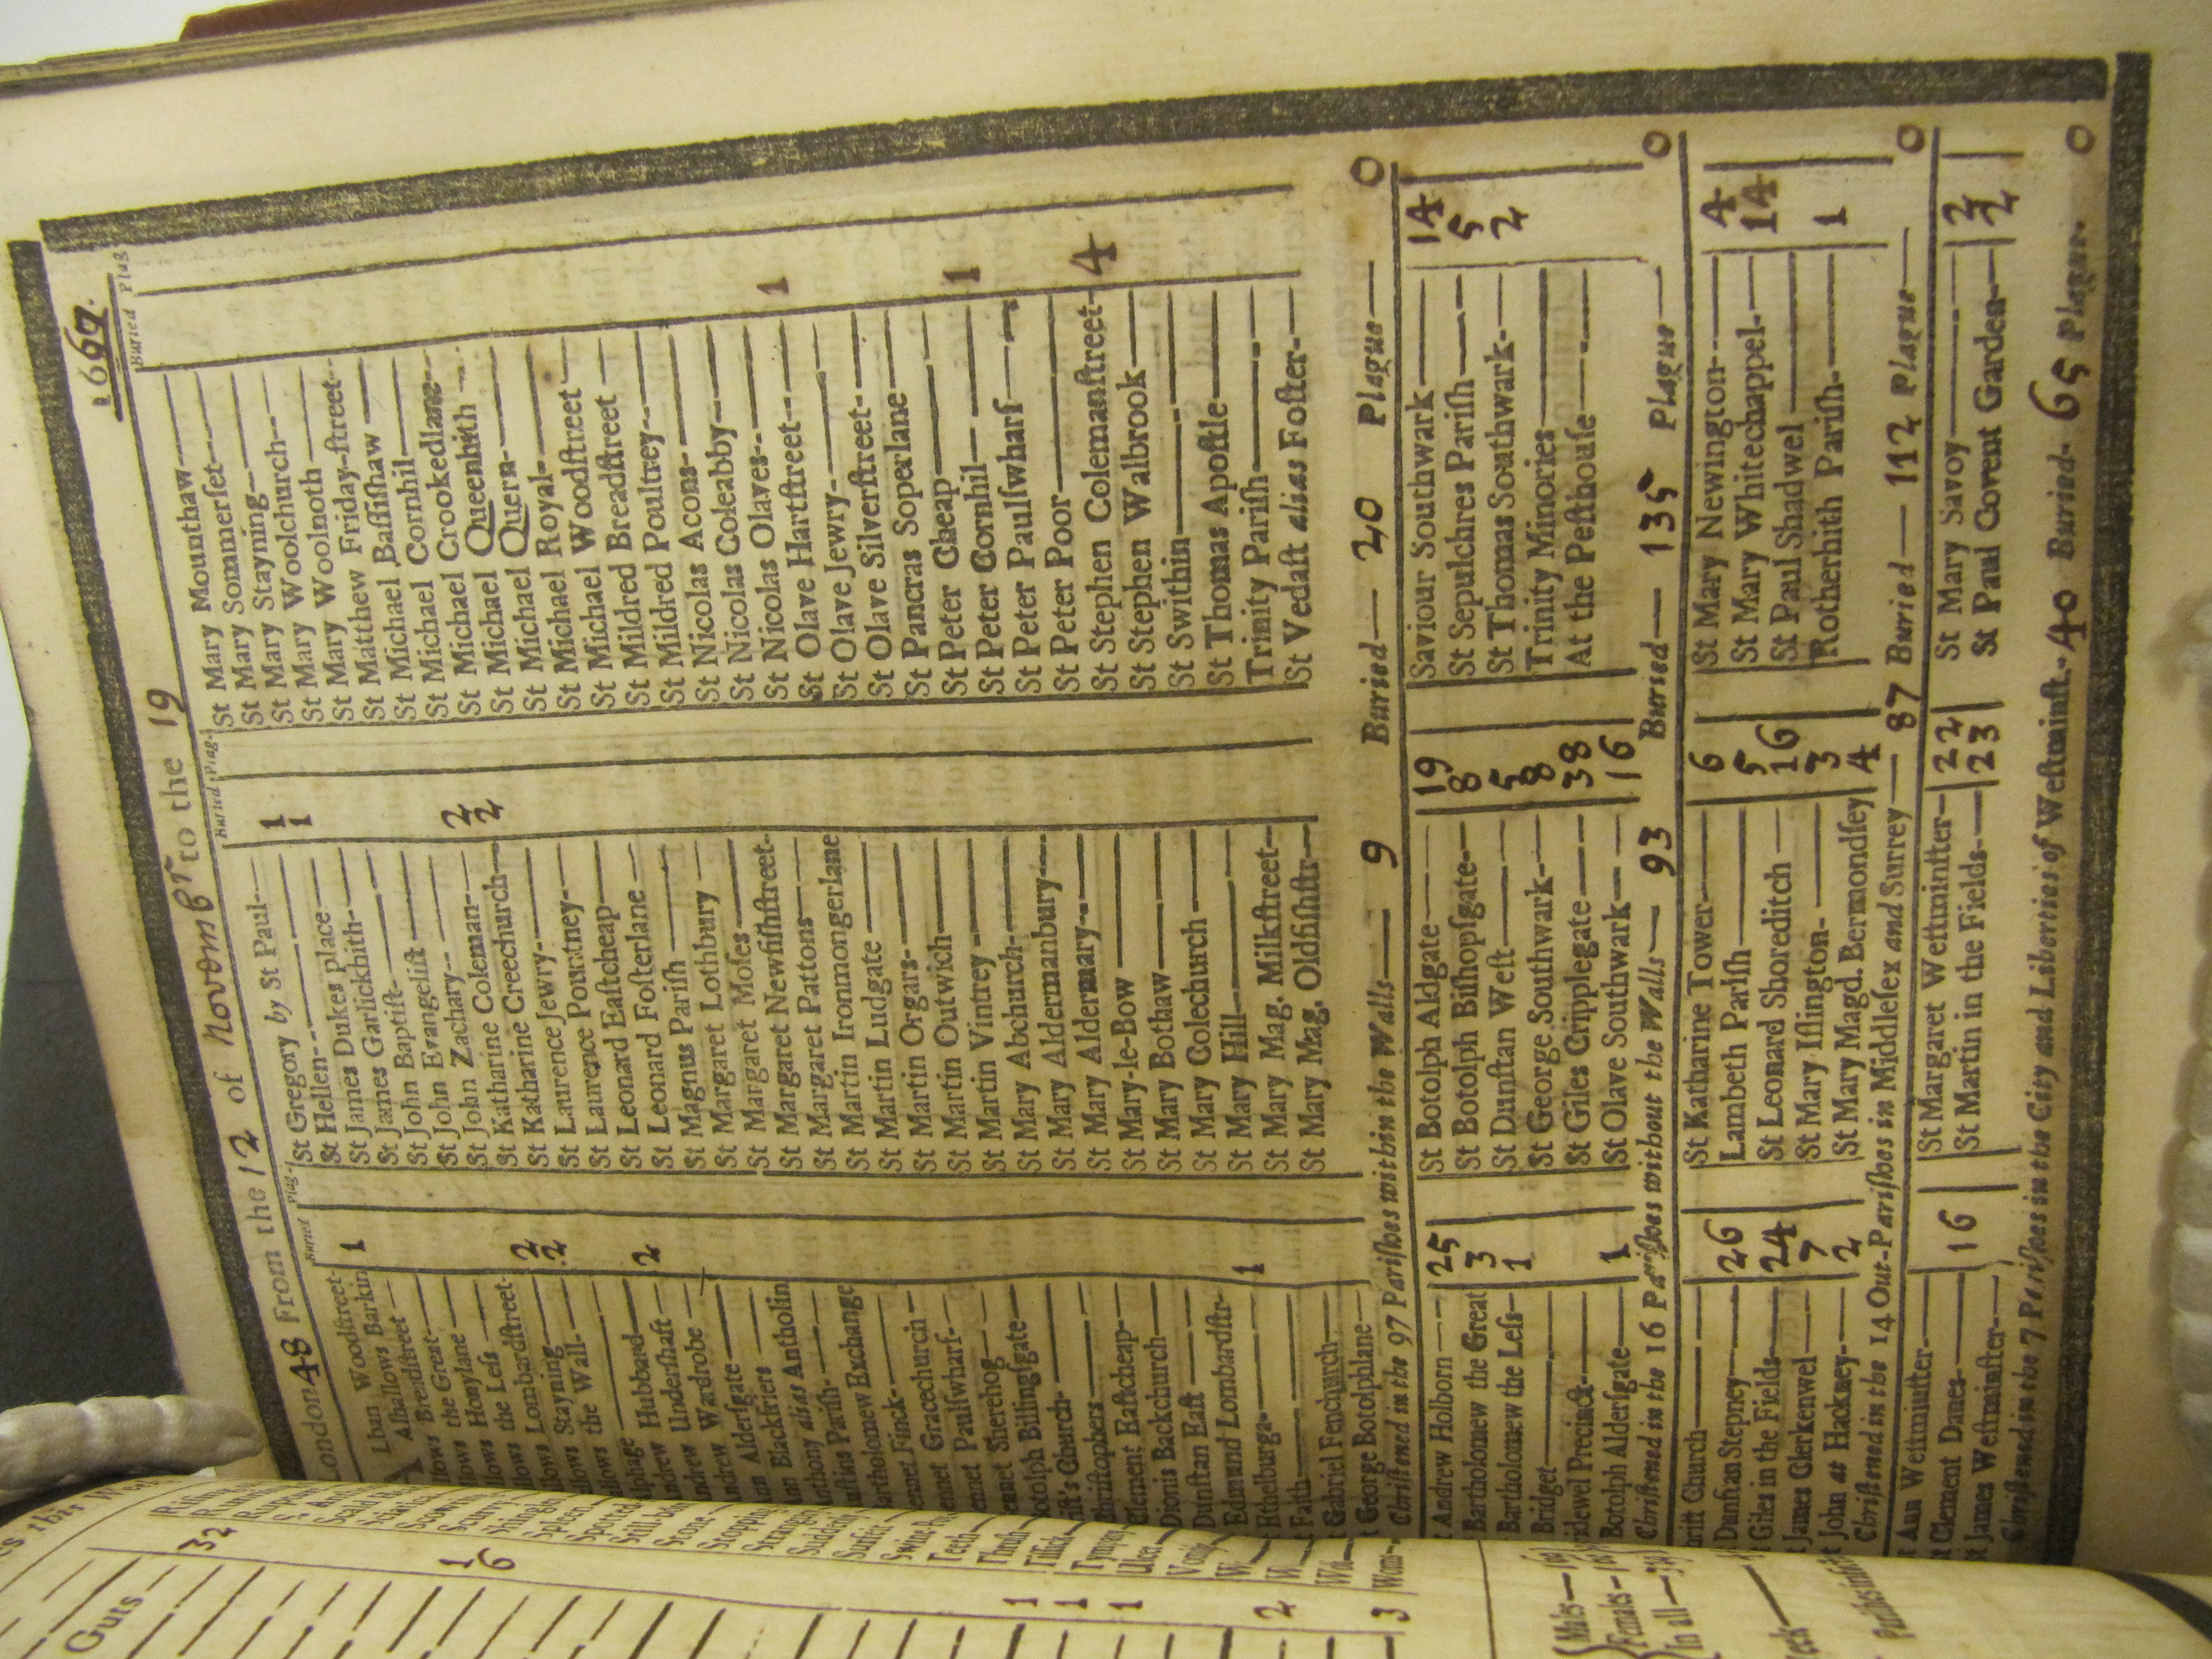 London 48 From the 12 of Novembr to the 19 1667.
Buried Plag.
Buried Plag.
Buried Plag
Lban Woodſtreet- 1
Alhallows Barkin
Alhallows Breadſtreet —
llows the Great—
llows Honylane —
llows the Leſs —
llows Lombardſtreet- 2
llows Stayning— 2
llows the Wall-
lphage —
ndrew Hubbard— 2
ndrew Underſhaft —
ndrew Wardrobe —
nn Alderſgate —
nn Blackfriers —
nthony alias Antholin
uſtins Pariſh-
artholomew Exchange
ennet Finck-
ennet Gracechurch —
ennet Paulſwharf-
ennet Sherehog—
otolph Billingſgate—
riſt's Church-
Chriſtophers—
Clement Eaſtcheap—
Dionis Backchurch—
Dunſtan Eaſt —
Edmund Lombardſtr-
Ethelburga- 1
Faith—
Gabriel Fenchurch—
George Botolphlane—
St Gregory by St Paul-
St Hellen- 1
St James Dukes place— 1
St James Garlickhith-
St John Baptiſt-
St John Evangeliſt —
St John Zachary-
St Katharine Coleman— 2
St Katharine Creechurch— 2
St Laurence Jewry-
St Laurence Pountney-
St Leonard Eaſtcheap—
St Leonard Foſterlane —
St Magnus Pariſh —
St Margaret Lothbury —
St Margaret Moſes—
St Margaret Newfiſhſtreet-
St Margaret Pattons—
St Martin Ironmongerlane
St Martin Ludgate —
St Martin Orgars-
St Martin Outwich—
St Martin Vintrey —
St Mary Abchurch-
St Mary Aldermanbury—
St Mary Aldermary-
St Mary-le-Bow —
St Mary Bothaw—
St Mary Colechurch —
St Mary Hill—
St Mary Mag. Milkſtreet—
St Mary Mag. Oldfiſhſtr—
St Mary Mounthaw—
St Mary Sommerſet-
St Mary Stayning—
St Mary Woolchurch-
St Mary Woolnoth —
St Mary Friday-ſtreet-
St Matthew Baſſiſhaw —
St Michael Cornhil—
St Michael Crookedlane-
St Michael Queenhith —
St Michael Quern-
St Michael Royal-
St Michael Woodſtreet —
St Mildred Breadſtreet —
St Mildred Poultrey-
St Nicolas Acons-
St Nicolas Coleabby-
St Nicolas Olaves-
St Olave Hartſtreet- 1
St Olave Jewry-
St Olave Silverſtreet-
St Pancras Soperlane—
St Peter Cheap—
St Peter Cornhil— 1
St Peter Paulſwharf—
St Peter Poor—
St Stephen Colemanſtreet- 4
St Stephen Walbrook—
St Swithin—
St Thomas Apoſtle—
Trinity Pariſh—
St Vedaſt alias Foſter-
Chriſtened in the 97 Pariſhes within the Walls— 9 Buried— 20 Plague— 0
Andrew Holborn — 25
Bartholomew the Great 3
Bartholomew the Leſs— 1
Bridget—
ridewel Precinct-
Botolph Alderſgate— 1
St Botolph Aldgate— 19
St Botolph Biſhopſgate- 8
St Dunſtan Weſt— 5
St George Southwark- 8
St Giles Cripplegate— 38
St Olave Southwark— 16
Saviour Southwark— 14
St Sepulchres Pariſh— 5
St Thomas Southwark- 2
Trinity Minories—
At the Peſthouſe—
Chriſtened in the 16 Pariſhes without the Walls— 93 Buried— 135 Plague— 0
hriſt Church—
Dunſtan Stepney— 26
Giles in the Fields— 24
James Clerkenwel— 7
John at Hackney- 2
St Katharine Tower— 6
Lambeth Pariſh— 5
St Leonard Shoreditch — 16
St Mary Iſlington- 3
St Mary Magd. Bermondſey 4
St Mary Newington- 4
St Mary Whitechappel- 14
St Paul Shadwel —
Rotherhith Pariſh- 1
Chriſtened in the 14 Out-Pariſhes in Middleſex and Surrey— 87 Buried— 112 Plague— 0
Ann Weſtminſter-
Clement Danes— 16
James Weſtminſter—
St Margaret Weſtminſter- 22
St Martin in the Fields- 23
St Mary Savoy— 2
St Paul Covent Garden— 2
Chriſtened in the 7 Pariſhes in the City and Liberties of Weſtminſt.- 40 Buried- 65 Plague. 0
Guts — 32
1
6
1
1
1
2
3
Scald
Shingles
Spleen
Spotted
Still bo
Stone-
Stopping
Strangl
Sudden
Teeth-
Thruſh
Tiſſick-
Tymp
Ulcer
Males—
Females-
In all—